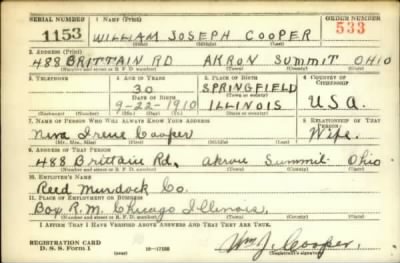 SERIAL NUMBER 1. NAME (Print) ORDER NUMBER
1153 WILLIAM JOSEPH COOPER 533
(First) (Middle) (Last)
2. ADDRESS (Print)
488 BRITTAIN RD AKRON SUMMIT OHIO
(Number and street or R. F. D. number) (Town) (County) (State)
3. TELEPHONE 4. AGE IN YEARS 5. PLACE OF BIRTH 6. COUNTRY OF CITIZENSHIP
30 SPRINGFIELD
(Town or county)
DATE OF BIRTH
9-22-1910 ILLINOIS U.S.A.
(Exchange) (Number) (Mo.) (Day) (Yr.) (State or country)
7. NAME OF PERSON WHO WILL ALWAYS KNOW YOUR ADDRESS 8. RELATIONSHIP OF THAT PERSON
Irene Cooper Wife.
(Mr., Mrs., Miss) (First) (Middle) (Last)
9. ADDRESS OF THAT PERSON
488 Brittain Rd, akron Summit Ohio
(Number and street or R. F. D. number) (Town) (County) (State)
10. EMPLOYER'S NAME
Reed Murdock Co.
11. PLACE OF EMPLOYMENT OR BUSINESS
Box R.M. Chicago Illinois,
(Number and street or R. F. D. number) (Town) (County) (State)
I AFFIRM THAT I HAVE VERIFIED ABOVE ANSWERS AND THAT THEY ARE TRUE.
REGISTRATION CARD
D. S. S. Form 1 Wm J. Cooper.
(Registrant's signature)